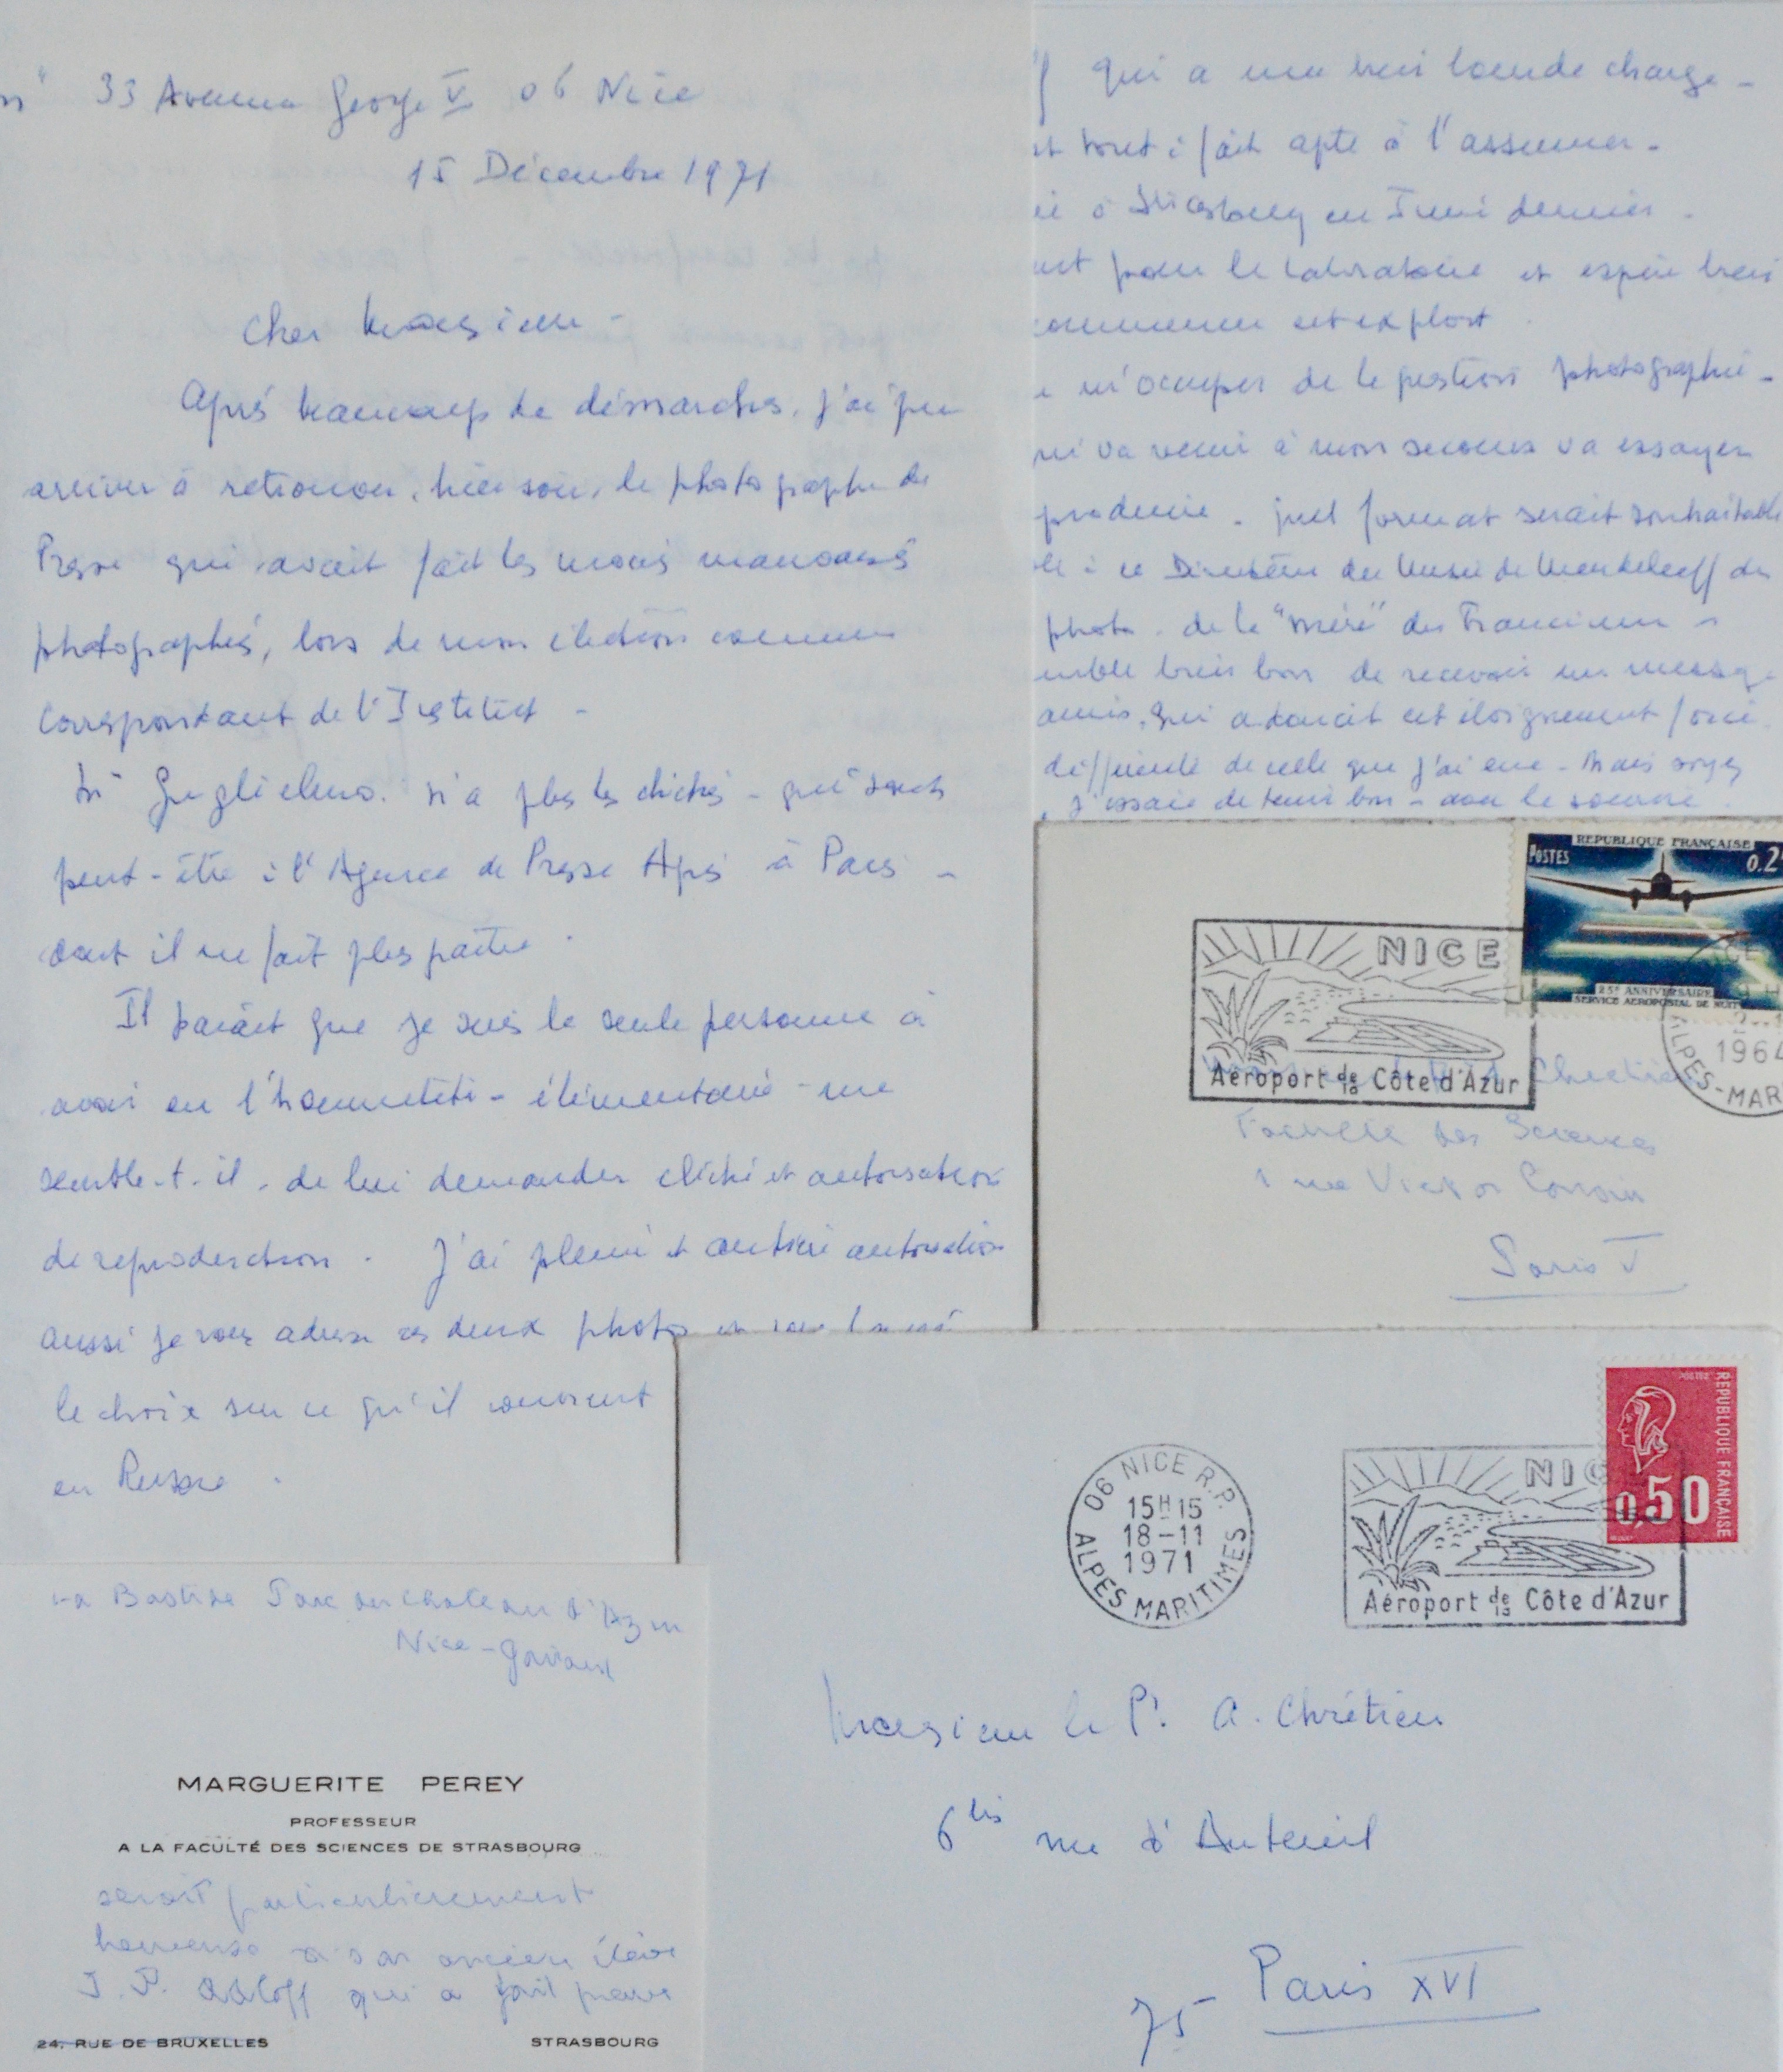 33 Avenue George V 06 Nice
15 Décembre 1971
Cher Monsieur -
Après beaucoup de démarches, j'ai pu
arriver à retrouver, hier soir, le photographe de
Presse qui avait fait les trois mauvaises
photographies, lors de mon élection comme
Correspondant de l'Institut -
Mr Guglielmo. n'a plus les clichés - qui sont
peut-être à l'Agence de Presse Apis à Paris -
dont il ne fait plus partie.
Il paraît que je suis la seule personne à
avoir eu l'honnêteté - élémentaire - me
semble-t-il, de lui demander cliché et autorisation
de reproduction. J'ai pleine et entière autorisation
aussi je vous adresse ces deux photos
le choix sur ce qu'il convient
en Russie.
qui a une très lourde charge -
tout à fait apte à l'assumer -
à Strasbourg en Juin dernier.
pour le Laboratoire et espère bien
cet exploit
m'occuper de la question photographie -
va venir à mon secours va essayer
quel format serait souhaitable
à ce Directeur du Musée de Mendeleeff des
photo. de la "mère" du Francium
très bon de recevoir un message
amis, qui adoucit cet éloignement forcé
différente de celle que j'ai eue - Mais soyez
j'essaie de tenir bon - avec le sourire.
REPUBLIQUE FRANÇAISE
POSTES
25e ANNIVERSAIRE
SERVICE AEROPOSTAL DE NUIT
NICE
Aéroport de la Côte d'Azur
1964
ALPES-MAR
Chrétien
Faculté des Sciences
1 rue Victor Cousin
Paris V
POSTES
REPUBLIQUE FRANÇAISE
0,50
06 NICE R.P.
15H15
18-11
1971
ALPES MARITIMES
NIC
Aéroport de la Côte d'Azur
Monsieur le Pr. A. Chrétien
6 bis rue d'Auteuil
75 Paris XVI
La Bastide Parc du Chateau d'Azur
Nice-Gairaut
MARGUERITE PEREY
PROFESSEUR
A LA FACULTÉ DES SCIENCES DE STRASBOURG
serait particulièrement
heureuse ancien élève
J. P. Adloff qui a fait preuve
24, RUE DE BRUXELLES
STRASBOURG